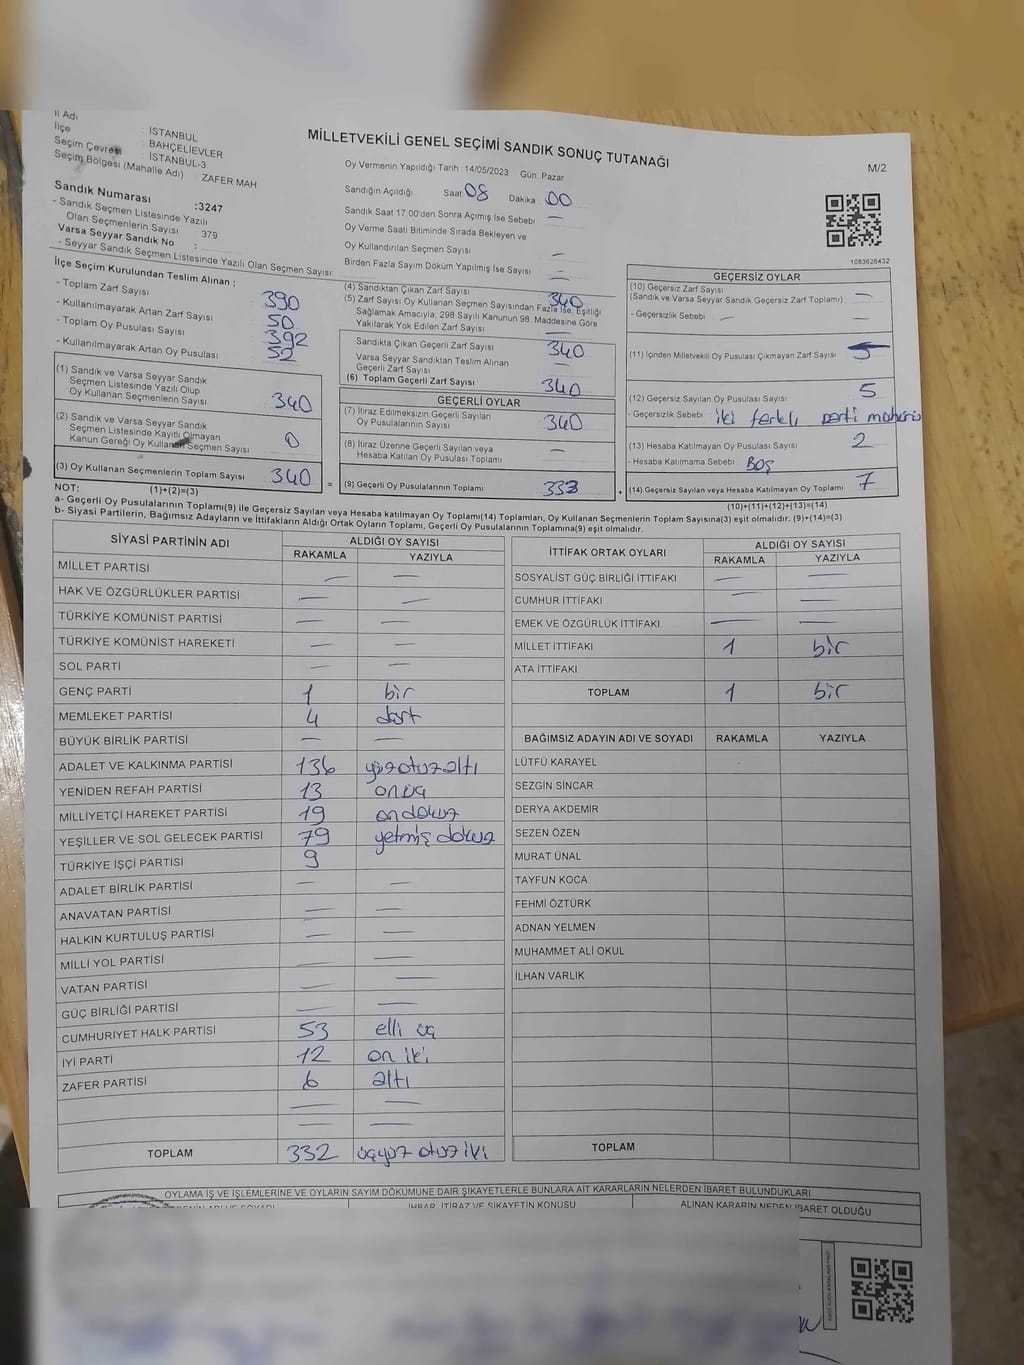 MİLLETVEKİLİ GENEL SEÇİMİ SANDIK SONUÇ TUTANAĞI
M/2
İl Adı : İSTANBUL
İlçe : BAHÇELİEVLER
Seçim Çevresi : İSTANBUL-3
Seçim Bölgesi (Mahalle Adı) : ZAFER MAH
Sandık Numarası :3247
- Sandık Seçmen Listesinde Yazılı
Olan Seçmenlerin Sayısı : 379
Varsa Seyyar Sandık No :
- Seyyar Sandık Seçmen Listesinde Yazılı Olan Seçmen Sayısı:
Oy Vermenin Yapıldığı Tarih :14/05/2023 Gün: Pazar
Sandığın Açıldığı Saat 08 Dakika 00
Sandık Saat 17:00'den Sonra Açımış İse Sebebi —
Oy Verme Saati Bitiminde Sırada Bekleyen ve
Oy Kullandırılan Seçmen Sayısı —
Birden Fazla Sayım Döküm Yapılmış İse Sayısı —
1083626432
İlçe Seçim Kurulundan Teslim Alınan ;
- Toplam Zarf Sayısı 390
- Kullanılmayarak Artan Zarf Sayısı 50
- Toplam Oy Pusulası Sayısı 392
- Kullanılmayarak Artan Oy Pusulası 52
(1) Sandık ve Varsa Seyyar Sandık
Seçmen Listesinde Yazılı Olup
Oy Kullanan Seçmenlerin Sayısı 340
(2) Sandık ve Varsa Seyyar Sandık
Seçmen Listesinde Kayıtlı Olmayan
Kanun Gereği Oy Kullanan Seçmen Sayısı 0
(3) Oy Kullanan Seçmenlerin Toplam Sayısı 340
(4) Sandıktan Çıkan Zarf Sayısı 340
(5) Zarf Sayısı Oy Kullanan Seçmen Sayısından Fazla İse, Eşitliği
Sağlamak Amacıyla, 298 Sayılı Kanunun 98. Maddesine Göre
Yakılarak Yok Edilen Zarf Sayısı —
Sandıkta Çıkan Geçerli Zarf Sayısı 340
Varsa Seyyar Sandıktan Teslim Alınan
Geçerli Zarf Sayısı —
(6) Toplam Geçerli Zarf Sayısı 340
GEÇERLİ OYLAR
(7) İtiraz Edilmeksizin Geçerli Sayılan
Oy Pusulalarının Sayısı 340
(8) İtiraz Üzerine Geçerli Sayılan veya
Hesaba Katılan Oy Pusulası Toplamı —
= (9) Geçerli Oy Pusulalarının Toplamı 333 +
GEÇERSİZ OYLAR
(10) Geçersiz Zarf Sayısı
(Sandık ve Varsa Seyyar Sandık Geçersiz Zarf Toplamı) —
- Geçersizlik Sebebi —
(11) İçinden Milletvekili Oy Pusulası Çıkmayan Zarf Sayısı
(12) Geçersiz Sayılan Oy Pusulası Sayısı 5
- Geçersizlik Sebebi iki farklı parti mührü
(13) Hesaba Katılmayan Oy Pusulası Sayısı 2
- Hesaba Katılmama Sebebi Boş
(14) Geçersiz Sayılan veya Hesaba Katılmayan Oy Toplamı 7
NOT: (1)+(2)=(3) (10)+(11)+(12)+(13)=(14)
a- Geçerli Oy Pusulalarının Toplamı(9) ile Geçersiz Sayılan veya Hesaba Katılmayan Oy Toplamı(14) Toplamları, Oy Kullanan Seçmenlerin Toplam Sayısına(3) eşit olmalıdır. (9)+(14)=(3)
b- Siyasi Partilerin, Bağımsız Adayların ve İttifakların Aldığı Ortak Oyların Toplamı, Geçerli Oy Pusulalarının Toplamına(9) eşit olmalıdır.
SİYASİ PARTİNİN ADI ALDIĞI OY SAYISI
RAKAMLA YAZIYLA
MİLLET PARTİSİ — —
HAK VE ÖZGÜRLÜKLER PARTİSİ — —
TÜRKİYE KOMÜNİST PARTİSİ — —
TÜRKİYE KOMÜNİST HAREKETİ — —
SOL PARTİ — —
GENÇ PARTİ 1 bir
MEMLEKET PARTİSİ 4 dört
BÜYÜK BİRLİK PARTİSİ — —
ADALET VE KALKINMA PARTİSİ 136 yüzotuzaltı
YENİDEN REFAH PARTİSİ 13 onüç
MİLLİYETÇİ HAREKET PARTİSİ 19 ondokuz
YEŞİLLER VE SOL GELECEK PARTİSİ 79 yetmiş dokuz
TÜRKİYE İŞÇİ PARTİSİ 9
ADALET BİRLİK PARTİSİ — —
ANAVATAN PARTİSİ — —
HALKIN KURTULUŞ PARTİSİ — —
MİLLİ YOL PARTİSİ — —
VATAN PARTİSİ — —
GÜÇ BİRLİĞİ PARTİSİ — —
CUMHURİYET HALK PARTİSİ 53 elli üç
İYİ PARTİ 12 on iki
ZAFER PARTİSİ 6 altı
— —
— —
TOPLAM 332 üçyüz otuz iki
İTTİFAK ORTAK OYLARI ALDIĞI OY SAYISI
RAKAMLA YAZIYLA
SOSYALİST GÜÇ BİRLİĞİ İTTİFAKI — —
CUMHUR İTTİFAKI — —
EMEK VE ÖZGÜRLÜK İTTİFAKI — —
MİLLET İTTİFAKI 1 bir
ATA İTTİFAKI
TOPLAM 1 bir
BAĞIMSIZ ADAYIN ADI VE SOYADI RAKAMLA YAZIYLA
LÜTFÜ KARAYEL
SEZGİN SİNCAR
DERYA AKDEMİR
SEZEN ÖZEN
MURAT ÜNAL
TAYFUN KOCA
FEHMİ ÖZTÜRK
ADNAN YELMEN
MUHAMMET ALİ OKUL
İLHAN VARLIK
TOPLAM
OYLAMA İŞ VE İŞLEMLERİNE VE OYLARIN SAYIM DÖKÜMÜNE DAİR ŞİKAYETLERLE BUNLARA AİT KARARLARIN NELERDEN İBARET BULUNDUKLARI
İHBAR, İTİRAZ VE ŞİKAYETİN KONUSU ALINAN KARARIN NEDEN İBARET OLDUĞU